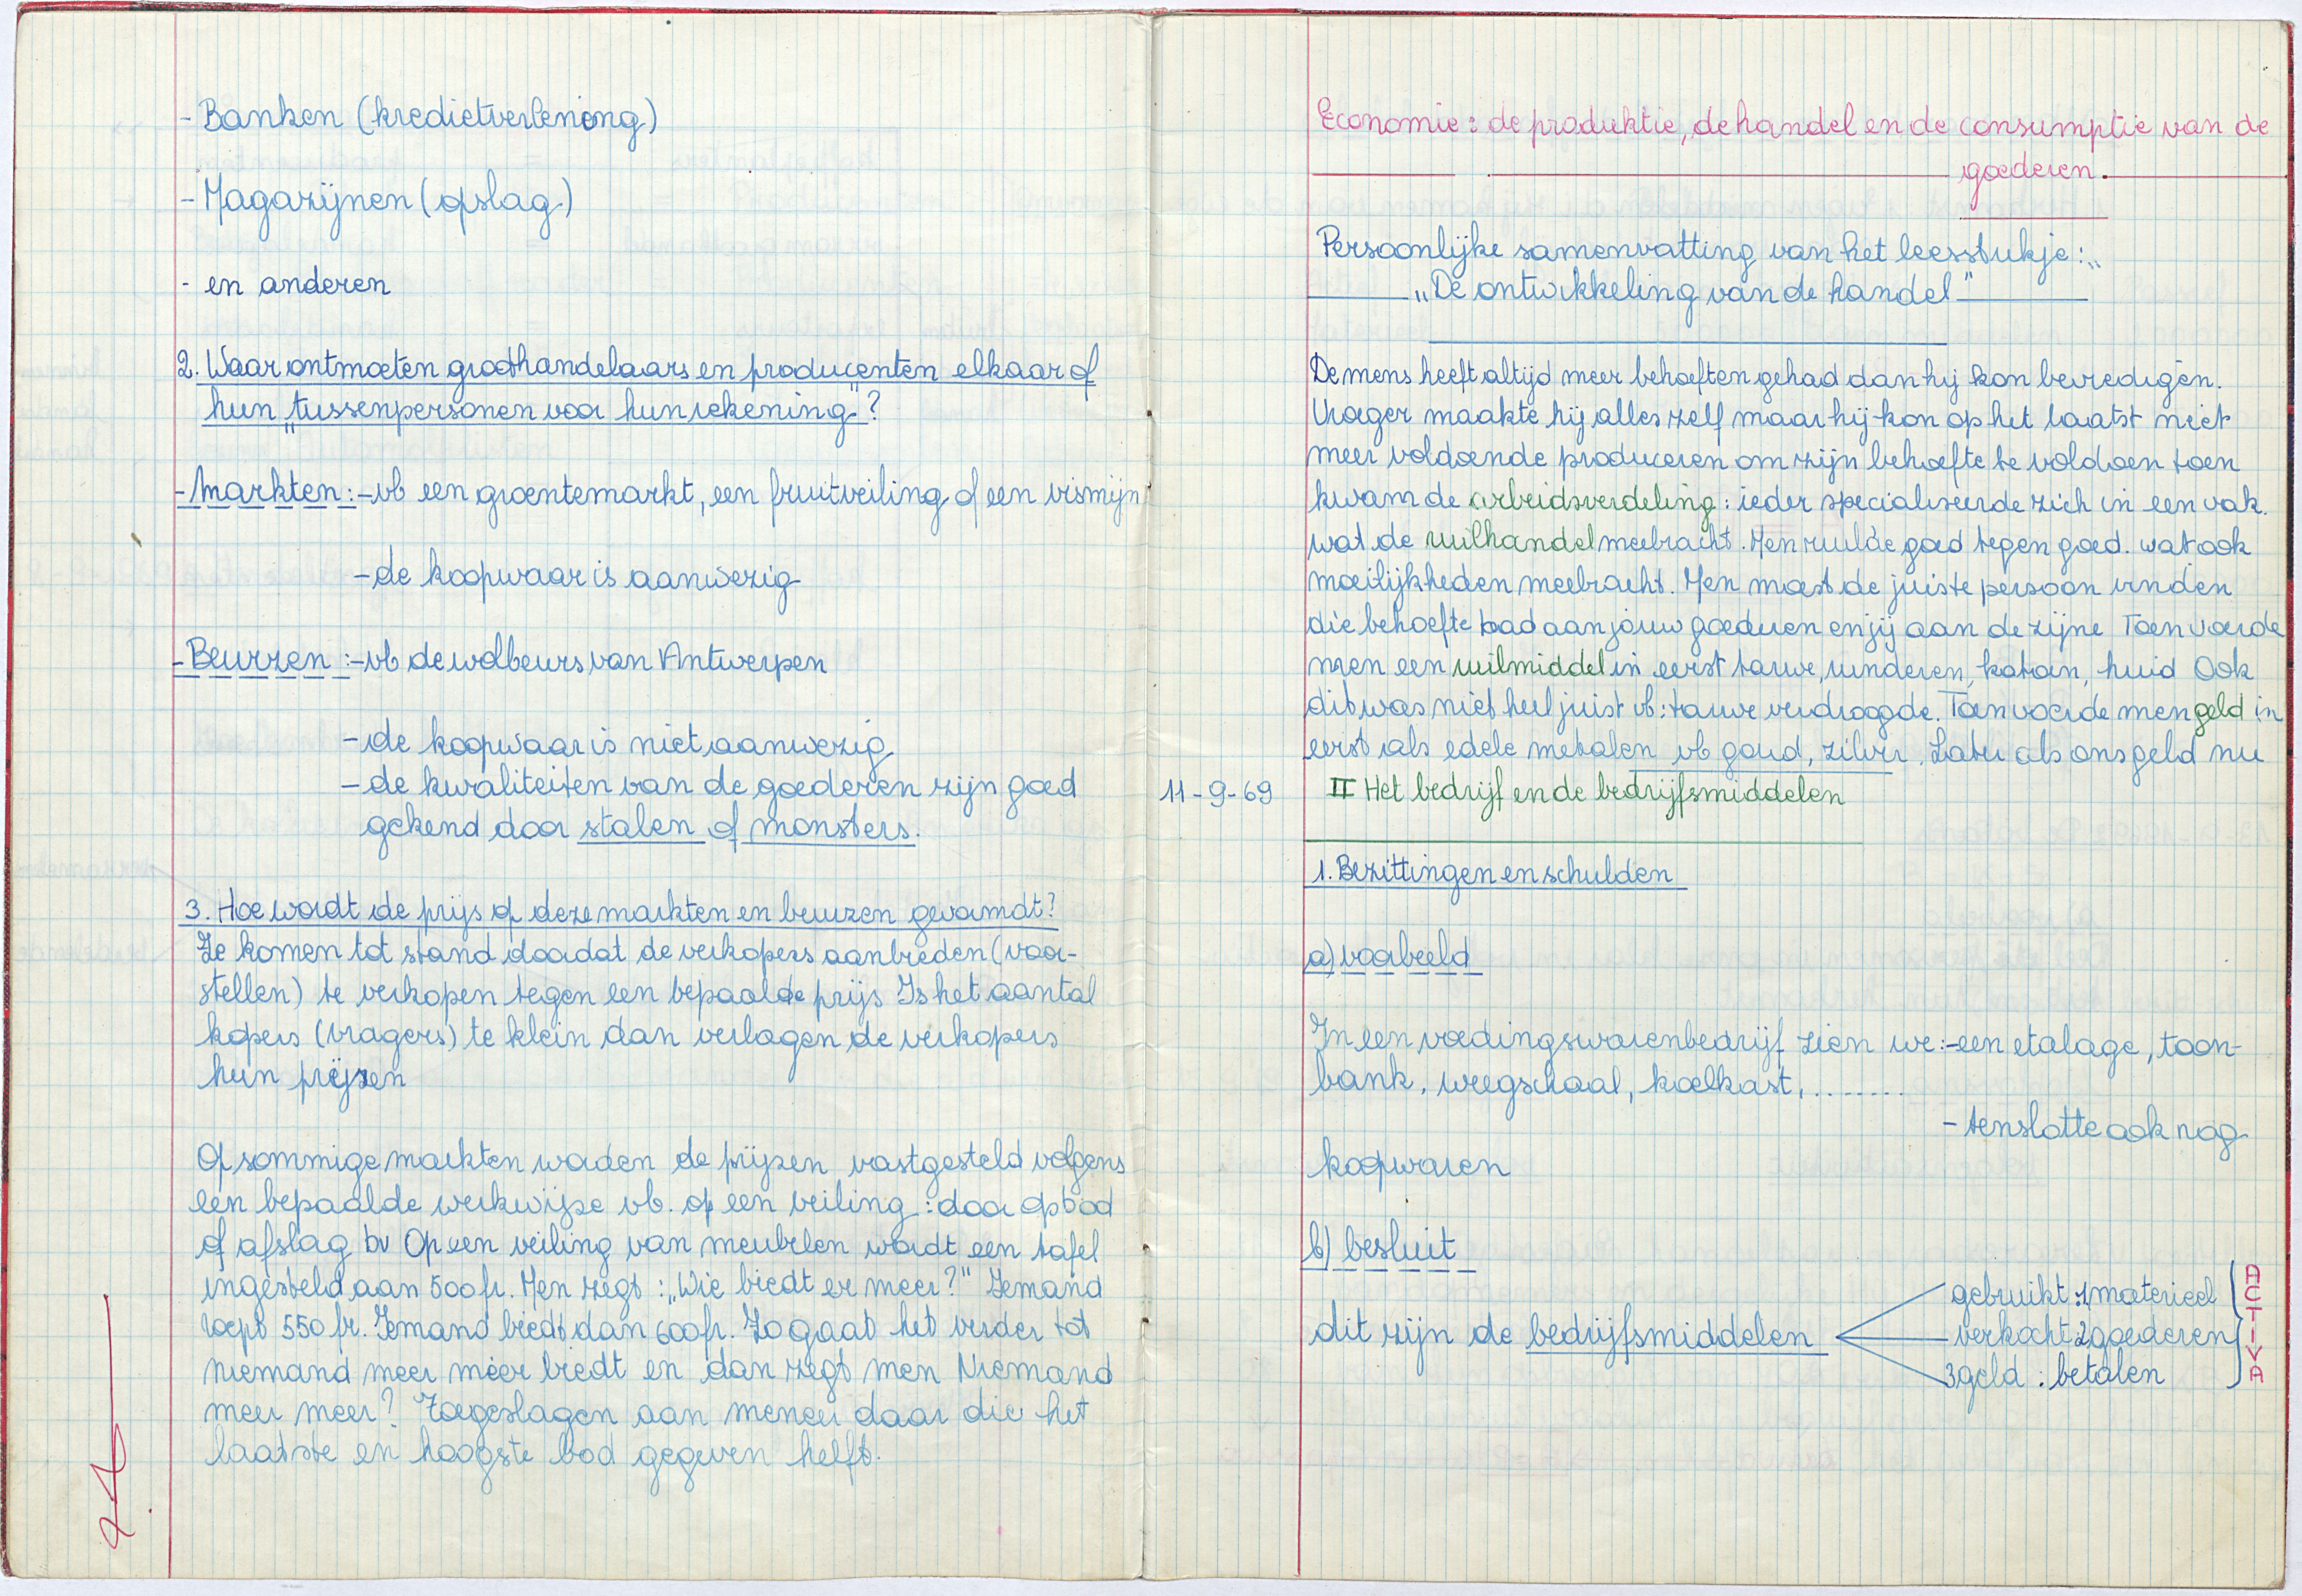 - Banken (kredietverlening)
- Magazijnen (opslag)
- en anderen
2. Waar ontmoeten groothandelaars en producenten elkaar of
hun „tussenpersonen voor hun rekening"?
- Markten: - vb een groentemarkt, een fruitveiling of een vismijn
- de koopwaar is aanwezig
- Beurzen: - vb de wolbeurs van Antwerpen
- de koopwaar is niet aanwezig
- de kwaliteiten van de goederen zijn goed
gekend door stalen of monsters.
3. Hoe wordt de prijs op deze markten en beurzen gevormdt?
Ze komen tot stand doordat de verkopers aanbieden (voor-
stellen) te verkopen tegen een bepaalde prijs Is het aantal
kopers (vragers) te klein dan verlagen de verkopers
hun prijzen
Op sommige markten worden de prijzen vastgesteld volgens
een bepaalde werkwijze vb. op een veiling : door opbod
of afslag bv Op een veiling van meubelen wordt een tafel
ingesteld aan 500 fr. Men zegt : „Wie biedt er meer?" Iemand
roept 550 fr. Iemand biedt dan 600 fr. Zo gaat het verder tot
niemand meer méér biedt en dan zegt men Niemand
meer meer? Toegeslagen aan meneer daar die het
laatste en hoogste bod gegeven helft.
Economie : de produktie, de handel en de consumptie van de
goederen.
Persoonlijke samenvatting van het leesstukje : „
„De ontwikkeling van de handel"
De mens heeft altijd meer behoeften gehad dan hij kon bevredigen.
Vroeger maakte hij alles zelf maar hij kon op het laatst niet
meer voldoende produceren om zijn behoefte te voldoen toen
kwam de arbeidsverdeling : ieder specialiseerde zich in een vak.
wat de ruilhandel meebracht. Men ruilde goed tegen goed. wat ook
moeilijkheden meebracht. Men moest de juiste persoon vinden
die behoefte had aan jouw goederen en jij aan de zijne Toen voerde
men een ruilmiddel in eerst tarwe, runderen, katoen, huid Ook
dit was niet heel juist vb : tarwe verdroogde. Toen voerde men geld in
eerst als edele metalen vb goud, zilver. Later als ons geld nu
11-9-69 II Het bedrijf en de bedrijfsmiddelen
1. Bezittingen en schulden
a) voorbeeld
In een voedingswarenbedrijf zien we : - een etalage, toon-
bank, weegschaal, koelkast, ........
- tenslotte ook nog
koopwaren
b) besluit
gebruikt : 1 materieel
dit zijn de bedrijfsmiddelen verkocht 2 goederen
3 geld : betalen
ACTIVA